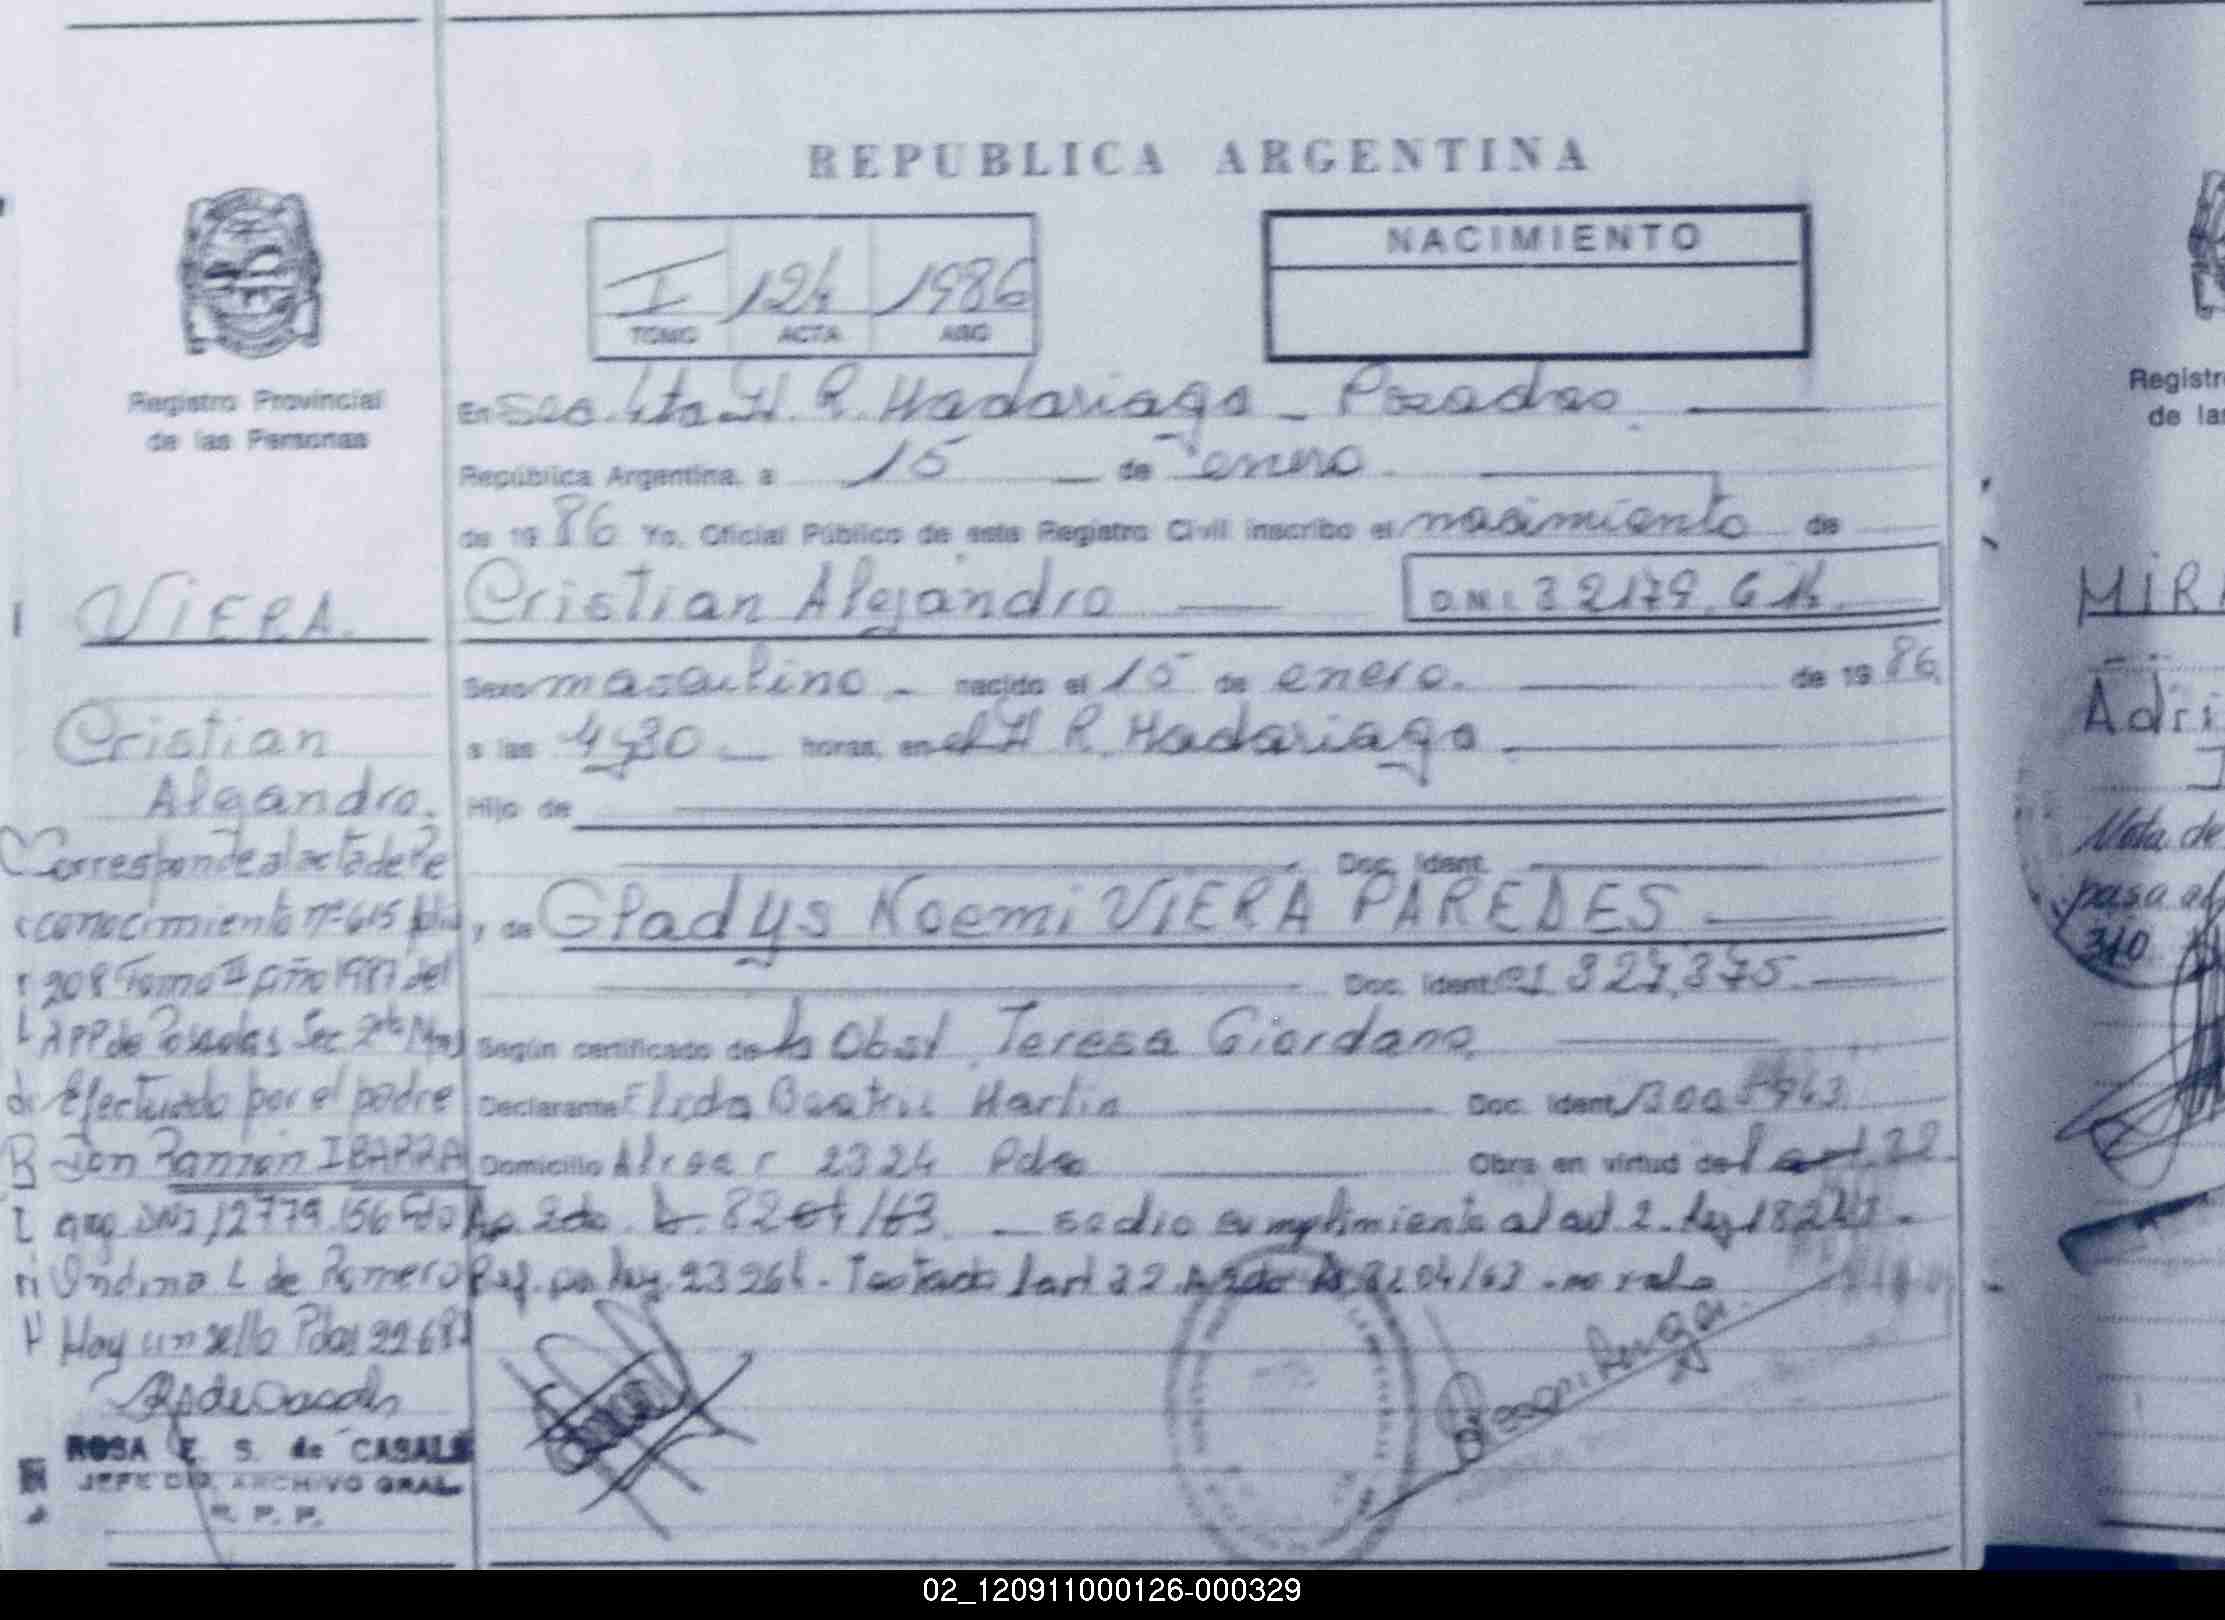 REPUBLICA ARGENTINA
I 124 1986
TOMO ACTA AÑO
NACIMIENTO
Registro Provincial
de las Personas
En Sec. 4ta H. R. Madariaga - Posadas
República Argentina, a 15 de enero
de 1986 Yo, Oficial Público de este Registro Civil inscribo el nacimiento de
Cristian Alejandro D.N.I. 32179.
Sexo masculino - nacido el 15 de enero. de 1986
a las 4y30 horas, en el H R. Madariaga
Hijo de
Doc. Ident.
y de Gladys Noemi VIERA PAREDES
Doc. Ident.
Según certificado de la Obst. Teresa Giordano
Declarante Elida Beatriz Martin Doc. Ident.
Domicilio 2324 Pdas Obra en virtud del art. 22
2do. 8204/63 - se dio cumplimiento al art 2. Ley
Ref. por Ley 23264 - Testado 2do 8204/63 - no vale
VIERA.
Cristian
Alejandro.
Corresponde al acta de Re
conocimiento nº 615 folio
208 Tomo II año 1987 del
RPP de Posadas Sec
Efectuado por el padre
Don Ramón IBARRA
arg. DNI 12779.156 Fdo
Ondina L de Romero
Hay un sello Pdas
ROSA E. S. de CASALS
JEFE DIR. ARCHIVO GRAL.
R. P. P.
Registr
de las
MIRA
Adri
Nota de
pasa al
310
02_120911000126-000329